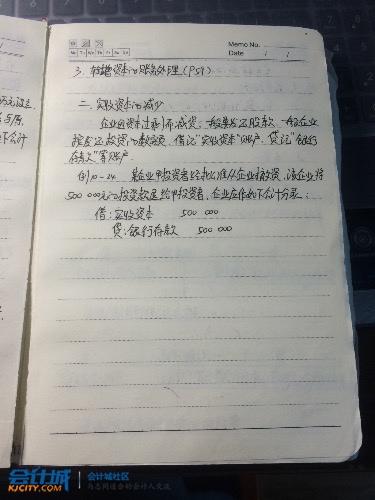 Memo No.
Mo Tu We Th Fr Sa Su
Date / /
3. 转增资本的账务处理 (P59)
二、实收资本的减少
企业因资本过剩而减资,一般要发还股款,一般企业
按发还投资的数额,借记“实收资本”账户,贷记“银行
存款”等账户
例10-24 某企业甲投资者经批准从企业抽资,该企业将
500 000元的投资款退给甲投资者,企业应作如下会计分录:
借:实收资本 500 000
贷:银行存款 500 000
会计城
KJCITY.COM
会计城社区
为志同道合的会计人交流